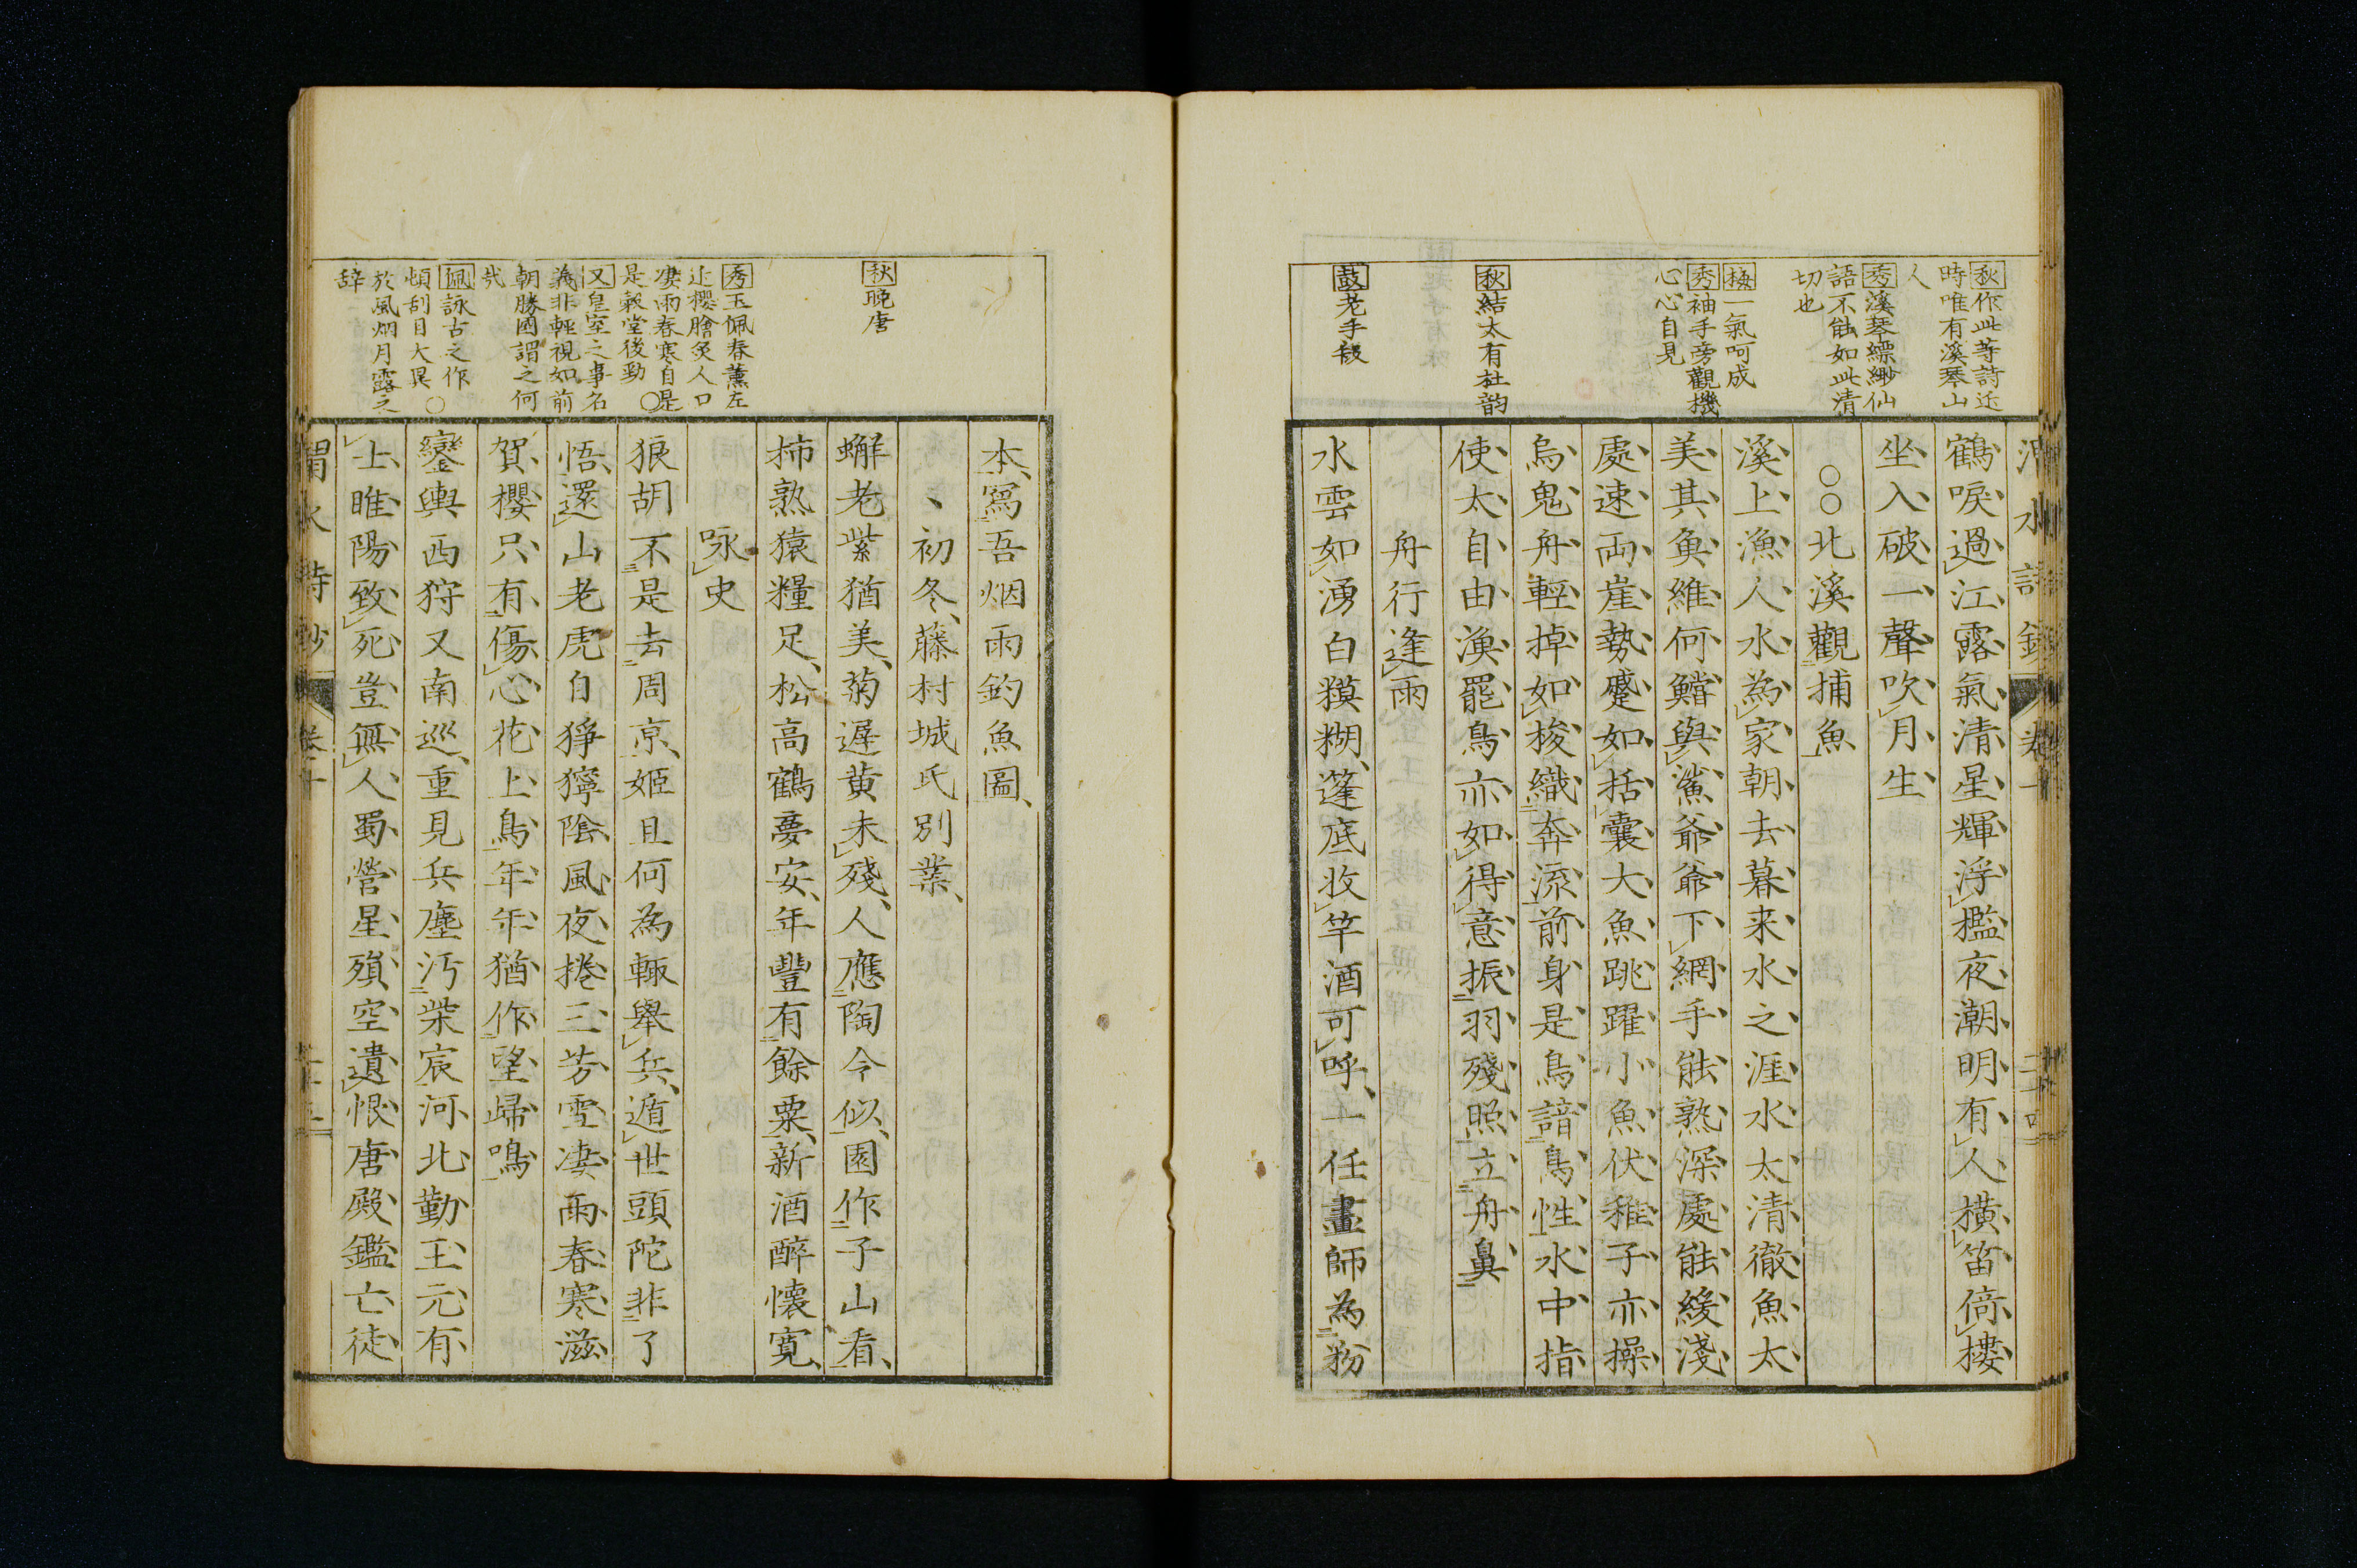 秋作此等詩近
時唯有溪琴山
人
秀溪琴縹緲仙
語不能如此清
切也
梅一氣呵成
秀袖手旁觀機
心心自見
秋結太有杜韵
鼓老手段
鶴唳過江露氣清星輝浮檻夜潮明有人横笛倚樓
坐入破一聲吹月生
○○北溪觀捕魚
溪上漁人水為家朝去暮来水之涯水太清徹魚太
美其魚維何鱨與鯊爺爺下網手能熟深處能緩淺
處速両崖勢蹙如括囊大魚跳躍小魚伏稚子亦操
烏鬼舟輕掉如梭織奔流前身是鳥諳鳥性水中指
使太自由漁罷鳥亦如得意振羽殘照立舟鼻
舟行逢雨
水雲如湧白糢糊篷底收竿酒可呼一任畫師為粉
秋晩唐
秀玉佩春薰左
近櫻膾炙人口
凄雨春寒自是
是穀堂後勁○
又皇室之事名
義非輕視如前
朝勝國謂之何
哉
佩詠古之作
頓刮目大異○
於風烟月露之
辞
本寫吾烟雨釣魚圖
、初冬藤村城氏別業
蠏老紫猶美菊遲黄未殘人應陶令似園作子山看
柿熟猿糧足松高鶴夢安年豐有餘粟新酒醉懐寛
咏史
狼胡不是去周京姫旦何為輙舉兵遁世頭陀非了
悟還山老虎自猙獰陰風夜捲三芳雪凄雨春寒滋
賀櫻只有傷心花上鳥年年猶作望帰鳴
鑾輿西狩又南巡重見兵塵汚柴宸河北勤王元有
士睢陽致死豈無人蜀營星殞空遺恨唐殿鑑亡徒